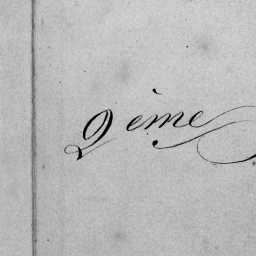 2ème